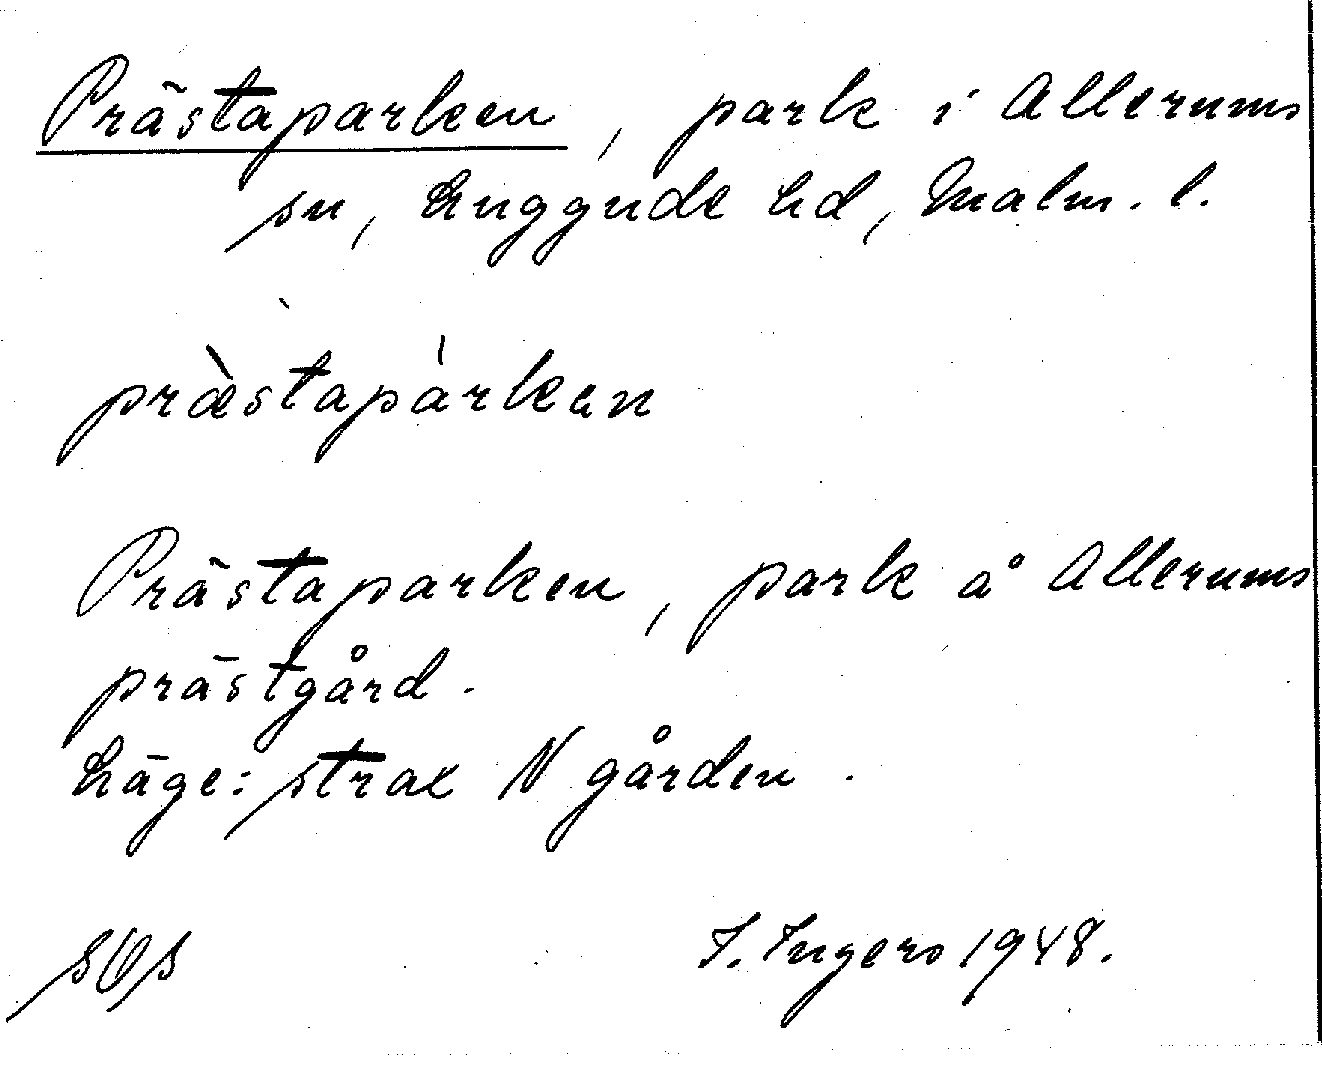 Prästaparken, park i Allerums
sn, Luggude hd, Malm. l.
præ̀stapàrken
Prästaparken, park å Allerums
prästgård.
Läge: strax N gården.
I. Ingers 1948.